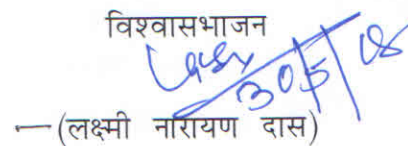 विश्वासभाजन
30/5/18
—(लक्ष्मी नारायण दास)